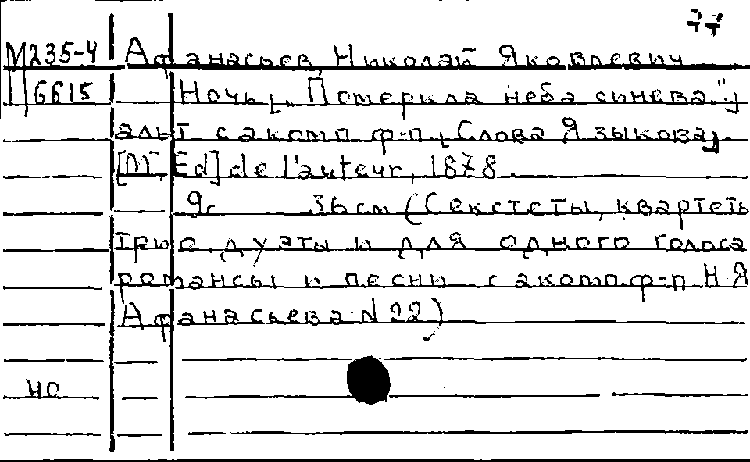 77
М235-4 Афанасьев, Николай Яковлевич
6615 Ночь[. "Померкла неба синева"]
альт с акомп ф-п. [Слова Языкова].
[М, Ed] de l'auteur, 1878
9с 36 см (Секстеты, квартеты
трио, дуэты и для одного голоса
романсы и песни с акомп ф-п Н Я
Афанасьева N 22)
но